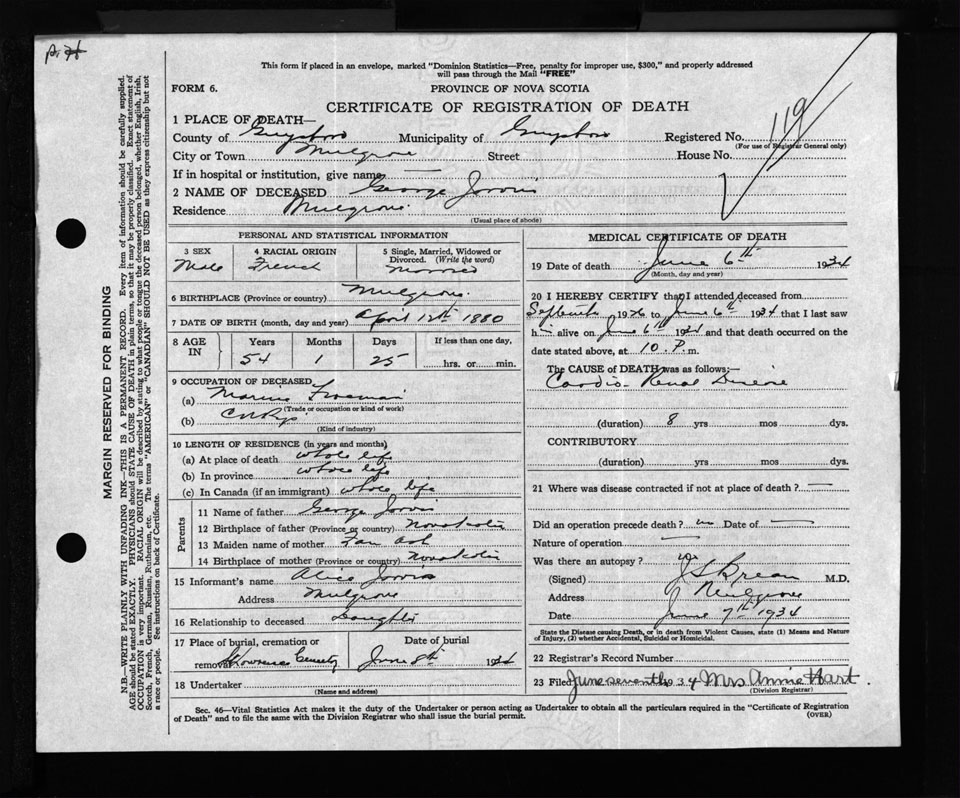 This form if placed in an envelope, marked "Dominion Statistics—Free, penalty for improper use, $300," and properly addressed
will pass through the Mail "FREE"
FORM 6.
PROVINCE OF NOVA SCOTIA
CERTIFICATE OF REGISTRATION OF DEATH
119
1 PLACE OF DEATH—
County of Guysboro Municipality of Guysboro Registered No.
(For use of Registrar General only)
City or Town Mulgrave Street House No.
If in hospital or institution, give name
2 NAME OF DECEASED George Jarvis
Residence Mulgrave
(Usual place of abode)
PERSONAL AND STATISTICAL INFORMATION
3 SEX Male
4 RACIAL ORIGIN French
5 Single, Married, Widowed or Divorced. (Write the word) Married
6 BIRTHPLACE (Province or country) Mulgrave
7 DATE OF BIRTH (month, day and year) April 12th 1880
8 AGE IN Years Months Days If less than one day,
54 1 25 hrs. or min.
9 OCCUPATION OF DECEASED
(a) Marine Fireman
(Trade or occupation or kind of work)
(b) C N Rys
(Kind of industry)
10 LENGTH OF RESIDENCE (in years and months)
(a) At place of death whole life
(b) In province whole life
(c) In Canada (if an immigrant) whole life
Parents
11 Name of father George Jarvis
12 Birthplace of father (Province or country) Nova Scotia
13 Maiden name of mother
14 Birthplace of mother (Province or country) Nova Scotia
15 Informant's name Alice Jarvis
Address Mulgrave
16 Relationship to deceased Daughter
17 Place of burial, cremation or removal Date of burial
June 8th 1934
18 Undertaker
(Name and address)
MEDICAL CERTIFICATE OF DEATH
19 Date of death June 6th 1934
(Month, day and year)
20 I HEREBY CERTIFY that I attended deceased from
September 1926 to June 6th 1934 that I last saw
him alive on June 6th 1934 and that death occurred on
date stated above, at 10 P. m.
The CAUSE of DEATH was as follows:—
Cardio-Renal Disease
(duration) 8 yrs mos dys.
CONTRIBUTORY
(duration) yrs. mos. dys.
21 Where was disease contracted if not at place of death?
Did an operation precede death? no Date of
Nature of operation
Was there an autopsy? no
(Signed) M.D.
Address Mulgrave
Date June 7th 1934
State the Disease causing Death, or in death from Violent Causes, state (1) Means and Nature
of Injury, (2) whether Accidental, Suicidal or Homicidal.
22 Registrar's Record Number
23 Filed June seventh 34 Mrs Annie Hart
(Division Registrar)
Sec. 46—Vital Statistics Act makes it the duty of the Undertaker or person acting as Undertaker to obtain all the particulars required in the "Certificate of Registration
of Death" and to file the same with the Division Registrar who shall issue the burial permit.
(OVER)
MARGIN RESERVED FOR BINDING
N.B.—WRITE PLAINLY WITH UNFADING INK—THIS IS A PERMANENT RECORD. Every item of information should be carefully supplied.
AGE should be stated EXACTLY. PHYSICIANS should STATE CAUSE OF DEATH in plain terms, so that it may be properly classified. Exact statement of
OCCUPATION is very important. RACIAL ORIGIN will be described by stating to what people or tongue the deceased person belonged, whether English, Irish,
Scotch, French, German, Russian, Ruthenian, etc. The terms "AMERICAN" or "CANADIAN" SHOULD NOT BE USED as they express citizenship but not
a race or people. See instructions on back of Certificate.